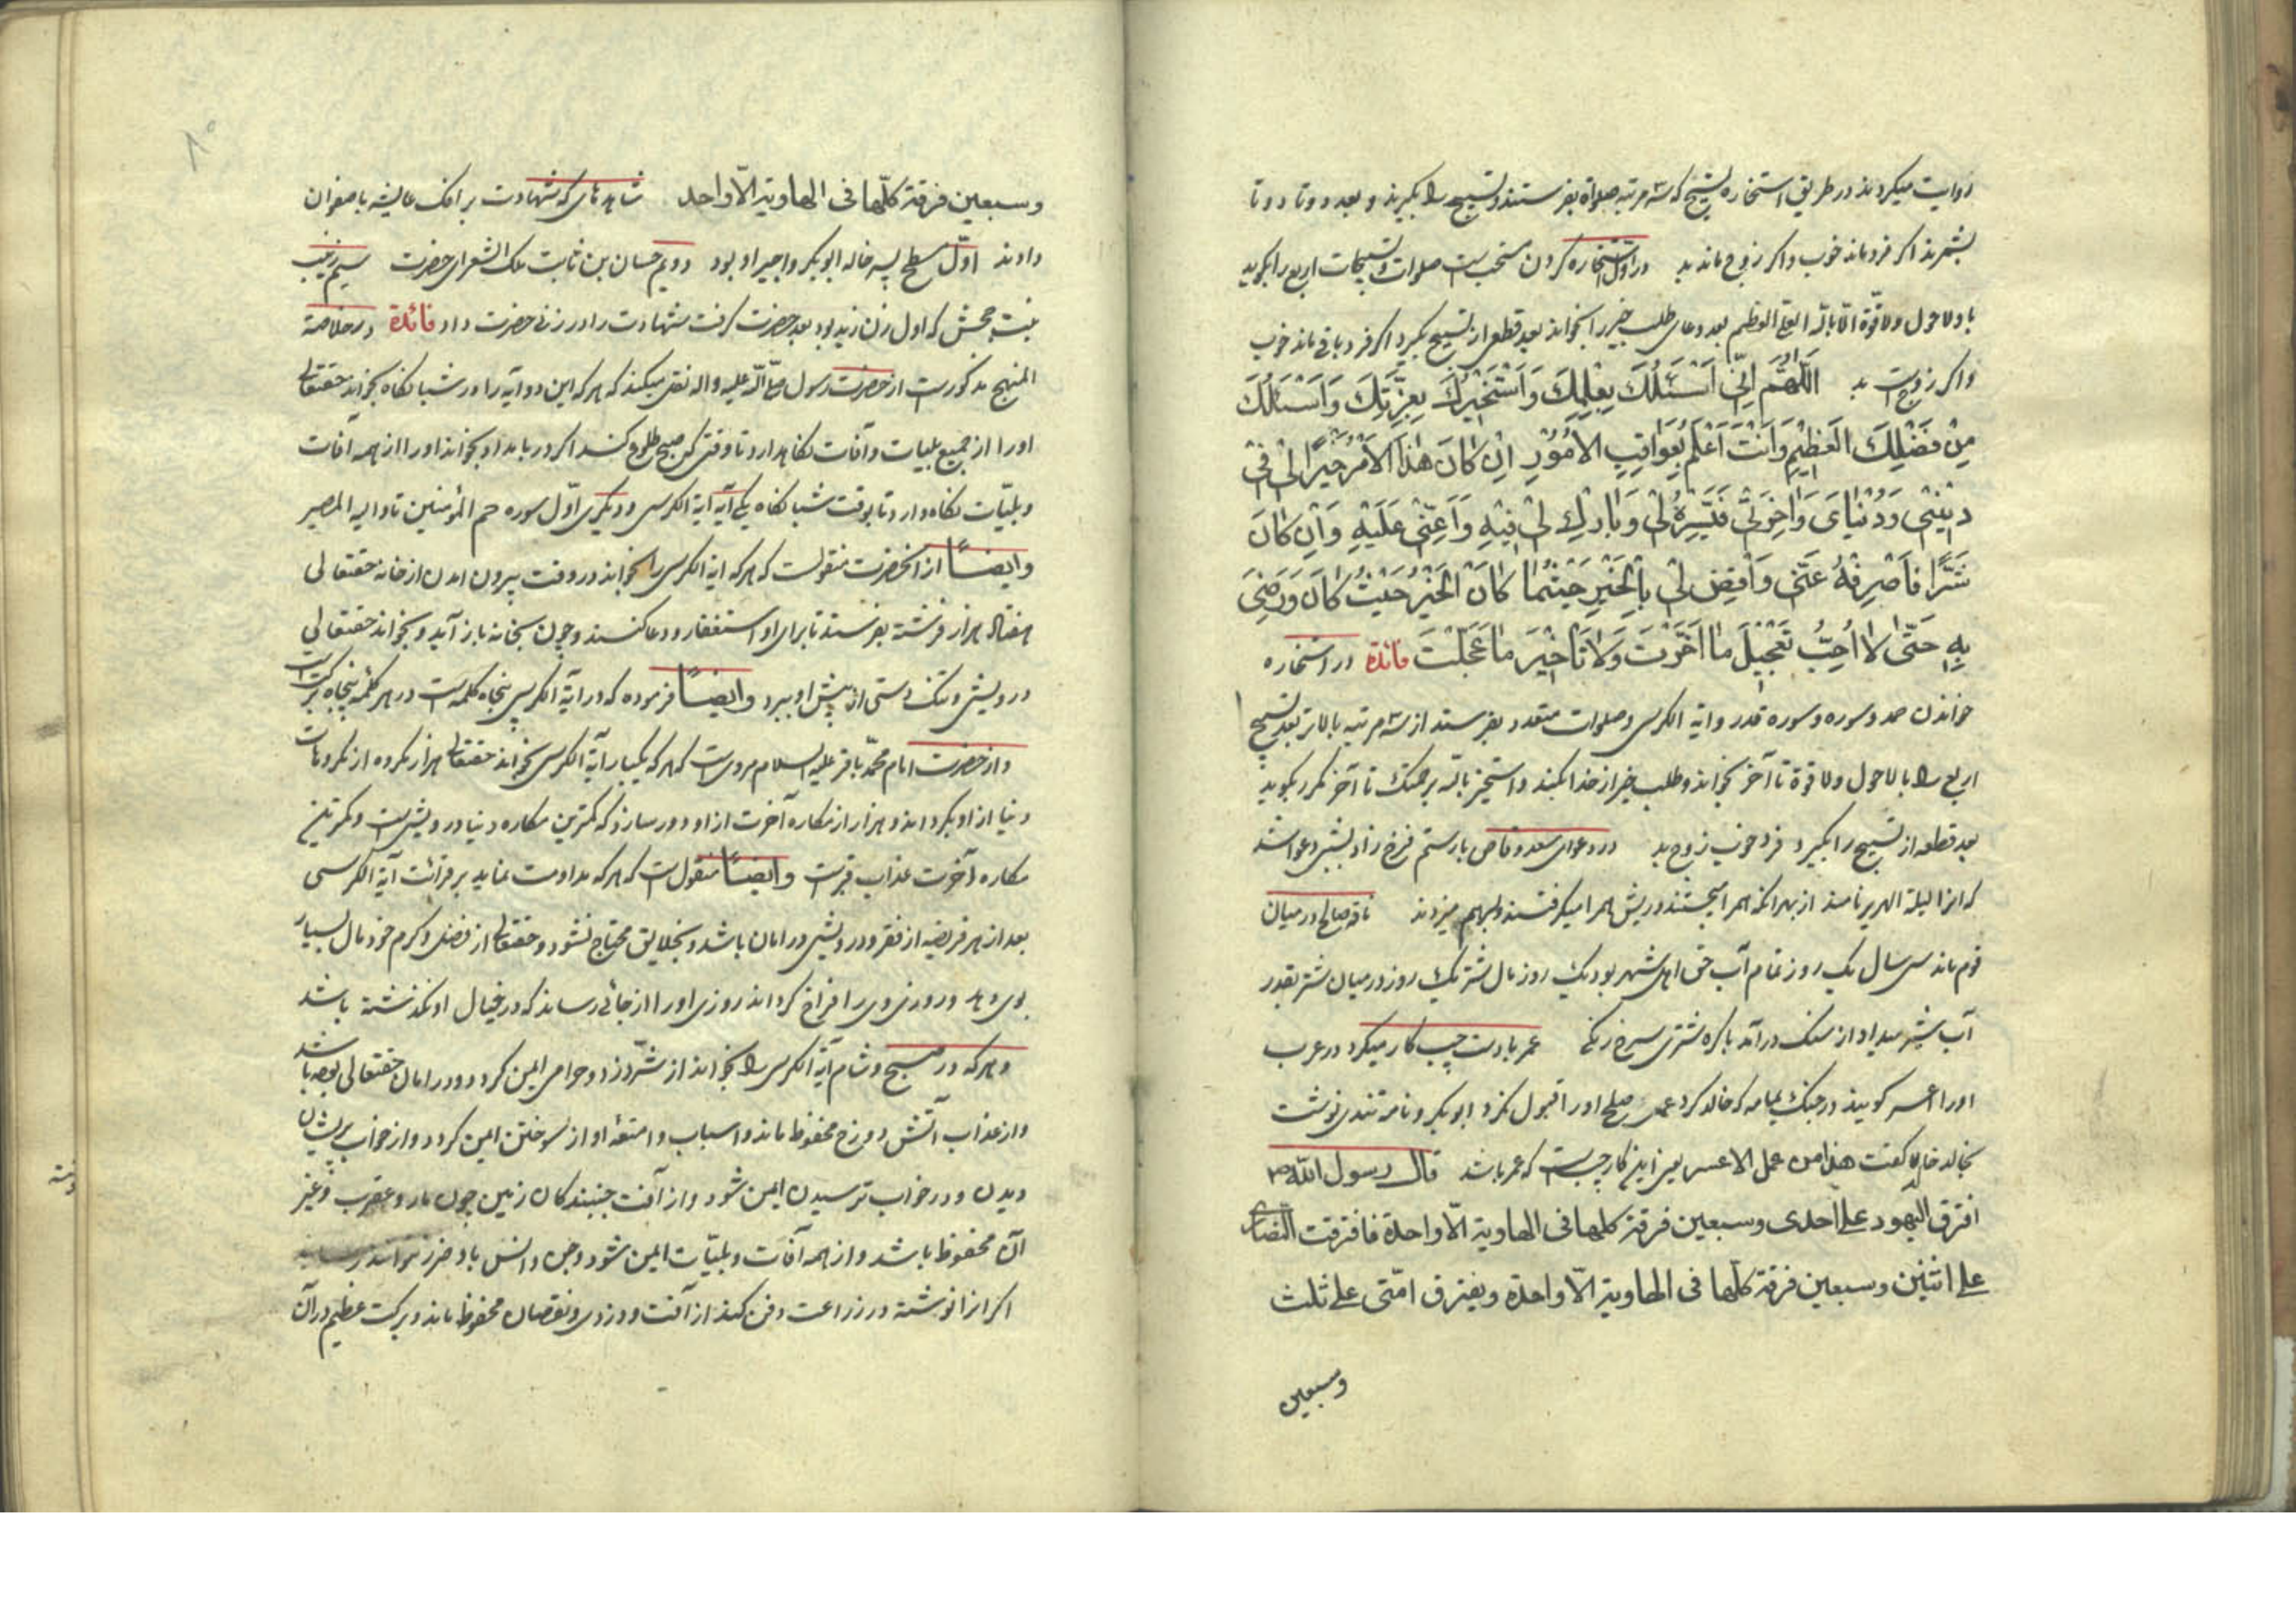 روایت میکردند در طریق استخاره تسبیح که سه مرتبه صلواة بفرستند و تسبیح را بگیرند و بعد دو تا دو تا
بشمرند اگر فرد ماند خوب و اگر زوج ماند بد در اول استخاره کردن مستحب است صلوات و تسبیحات اربع را بگوید
با ولا حول ولا قوّة الّا باللّه العلی العظیم بعد دعای طلب خیر را بخواند بعد قطعی از تسبیح بگیرد اگر فرد باقی ماند خوب
و اگر زوجست بد اَللّهُمَّ اِنّی اَسْئَلُكَ بِعِلْمِكَ وَاَسْتَخیرُكَ بِعِزَّتِكَ وَاَسْئَلُكَ
مِنْ فَضْلِكَ الْعَظیمِ وَاَنْتَ اَعْلَمُ بِعَواقِبِ الْاُمُوْرِ اِنْ كانَ هٰذَا الْاَمْرُ خَیْرًا لی فی
دیْنی وَدُنْیایَ وَاٰخِرَتی فَیَسِّرْهُ لی وَبارِكْ لی فیْهِ وَاَعِنّی عَلَیْهِ وَاِنْ كانَ
شَرًّا فَاصْرِفْهُ عَنّی وَاقْضِ لی بِالْخَیْرِ حَیْثُما كانَ الْخَیْرُ حَیْثُ كانَ وَرَضِّنی
بِهِ حَتّٰی لا اُحِبُّ تَعْجیْلَ ما اَخَّرْتَ وَلا تَاْخیْرَ ما عَجَّلْتَ فائدة در استخاره
خواندن حمد و سوره و سوره قدر و ایة الکرسی و صلوات متعدد بفرستد از سه مرتبه بالاتر بعد تسبیح
اربع را با لا حول ولا قوة تا آخر بخواند و طلب خیر از خدا بکند و استخیر باللّه برحمتك تا آخر مکرر بگوید
بعد قطعه از تسبیح را بگیرد فرد خوب زوج بد در دعوای سعد وقاص با رستم فرخ زاد شبی دعوا شد
که انرا لیلة الهریر نامند از بهر انکه همرا میجستند و ریش همرا میگرفتند و بهم میزدند ناقه صالح در میان
قوم ماند سی سال یک روز تمام آب حق اهل شهر بود یك روز مال شتر یك روز در میان شتر بقدر
آب شیر میداد از سنک درآمد با کره شتری سرخ رنگی عمر با دست چپ کار میکرد در عرب
اورا اعسر کویند در جنک یمامه که خالد کرد عمر صلح اورا قبول نکرد ابو بکر و نامه تندی نوشت
بخالد خالد گفت هذا من عمل الاعسر یعنی این کار چپ است که عمر باشد قال رسول اللّه ص
افترق الیهود علی احدی وسبعین فرقة کلها فی الهاویة الّا واحدة فافترقت النصاری
علی اثنین وسبعین فرقة کلّها فی الهاویة الّا واحدة ویفترق امّتی علی ثلث
وسبعین
۸۰
وسبعین فرقة کلّها فی الهاویة الّا واحد شاهدهای که شهادت بر افک عایشه با صفوان
دادند اوّل مسطح پسر خاله ابو بکر و اجیر او بود دویم حسان بن ثابت ملك الشعرای حضرت سیم زینب
بنت جحش که اول زن زید بود بعد حضرت گرفت شهادت را در زنی حضرت داد فائدة در خلاصة
المنهج مذکورست از حضرت رسول صلّی اللّه علیه واله نقل میکند که هر که این دو آیه را در شبانکاه بخواند حقتعالی
اورا از جمیع بلیات و آفات نگاهدارد تا وقتی که صبح طلوع کند اکر در بامداد بخواند اورا از همه آفات
و بلیّات نکاه دارد تا بوقت شبانکاه یکی آیة آیة الکرسی و دیگری اوّل سوره حم المؤمنین تا و الیه المصیر
وایضاً از انحضرت منقولست که هر که ایة الکرسی را بخواند در وقت بیرون امدن از خانه حقتعالی
هفتاد هزار فرشته بفرستد تا برای او استغفار و دعا کنند و چون بخانه باز آید و بخواند حقتعالی
درویشی و تنک دستی از پیش او ببرد وایضاً فرموده که در آیة الکرسی پنجاه کلمه است در هر کلمه پنجاه برکت است
و از حضرت امام محمّد باقر علیه السلام مرویست که هر که یکبار آیة الکرسی بخواند حقتعالی هزار مکروه از مکروهات
دنیا از او بگرداند و هزار از مکاره آخرت از او دور سازد که کمترین مکاره دنیا درویشی است و کمترین
مکاره آخرت عذاب قبرست وایضاً منقول است که هر که مداومت نماید بر قرائت آیة الکرسی
بعد از هر فریضه از فقر و درویشی در امان باشد و بخلایق محتاج نشود و حقتعالی از فضل و کرم خود مال بسیار
بوی دهد و روزی وی را فراخ گرداند روزی اورا از جائی رساند که در خیال او نکذشته باشد
و هر که در صبح و شام آیة الکرسی را بخواند از شرّ دزد و حرامی ایمن کردد و در امان حقتعالی بوده باشد
و از عذاب آتش دوزخ محفوظ ماند و اسباب و امتعه او از سوختن ایمن کردد و از خواب پریشان
دیدن و در خواب ترسیدن ایمن شود و از آفت جنبندکان زمین چون مار و عقرب و غیر
آن محفوظ باشد و از همه آفات و بلیّات ایمن شود و جن و انس باو ضرر نتوانند رسانید
اکر انرا نوشته در زراعت دفن کنند از آفت و دزدی و نقصان محفوظ ماند و برکت عظیم در آن